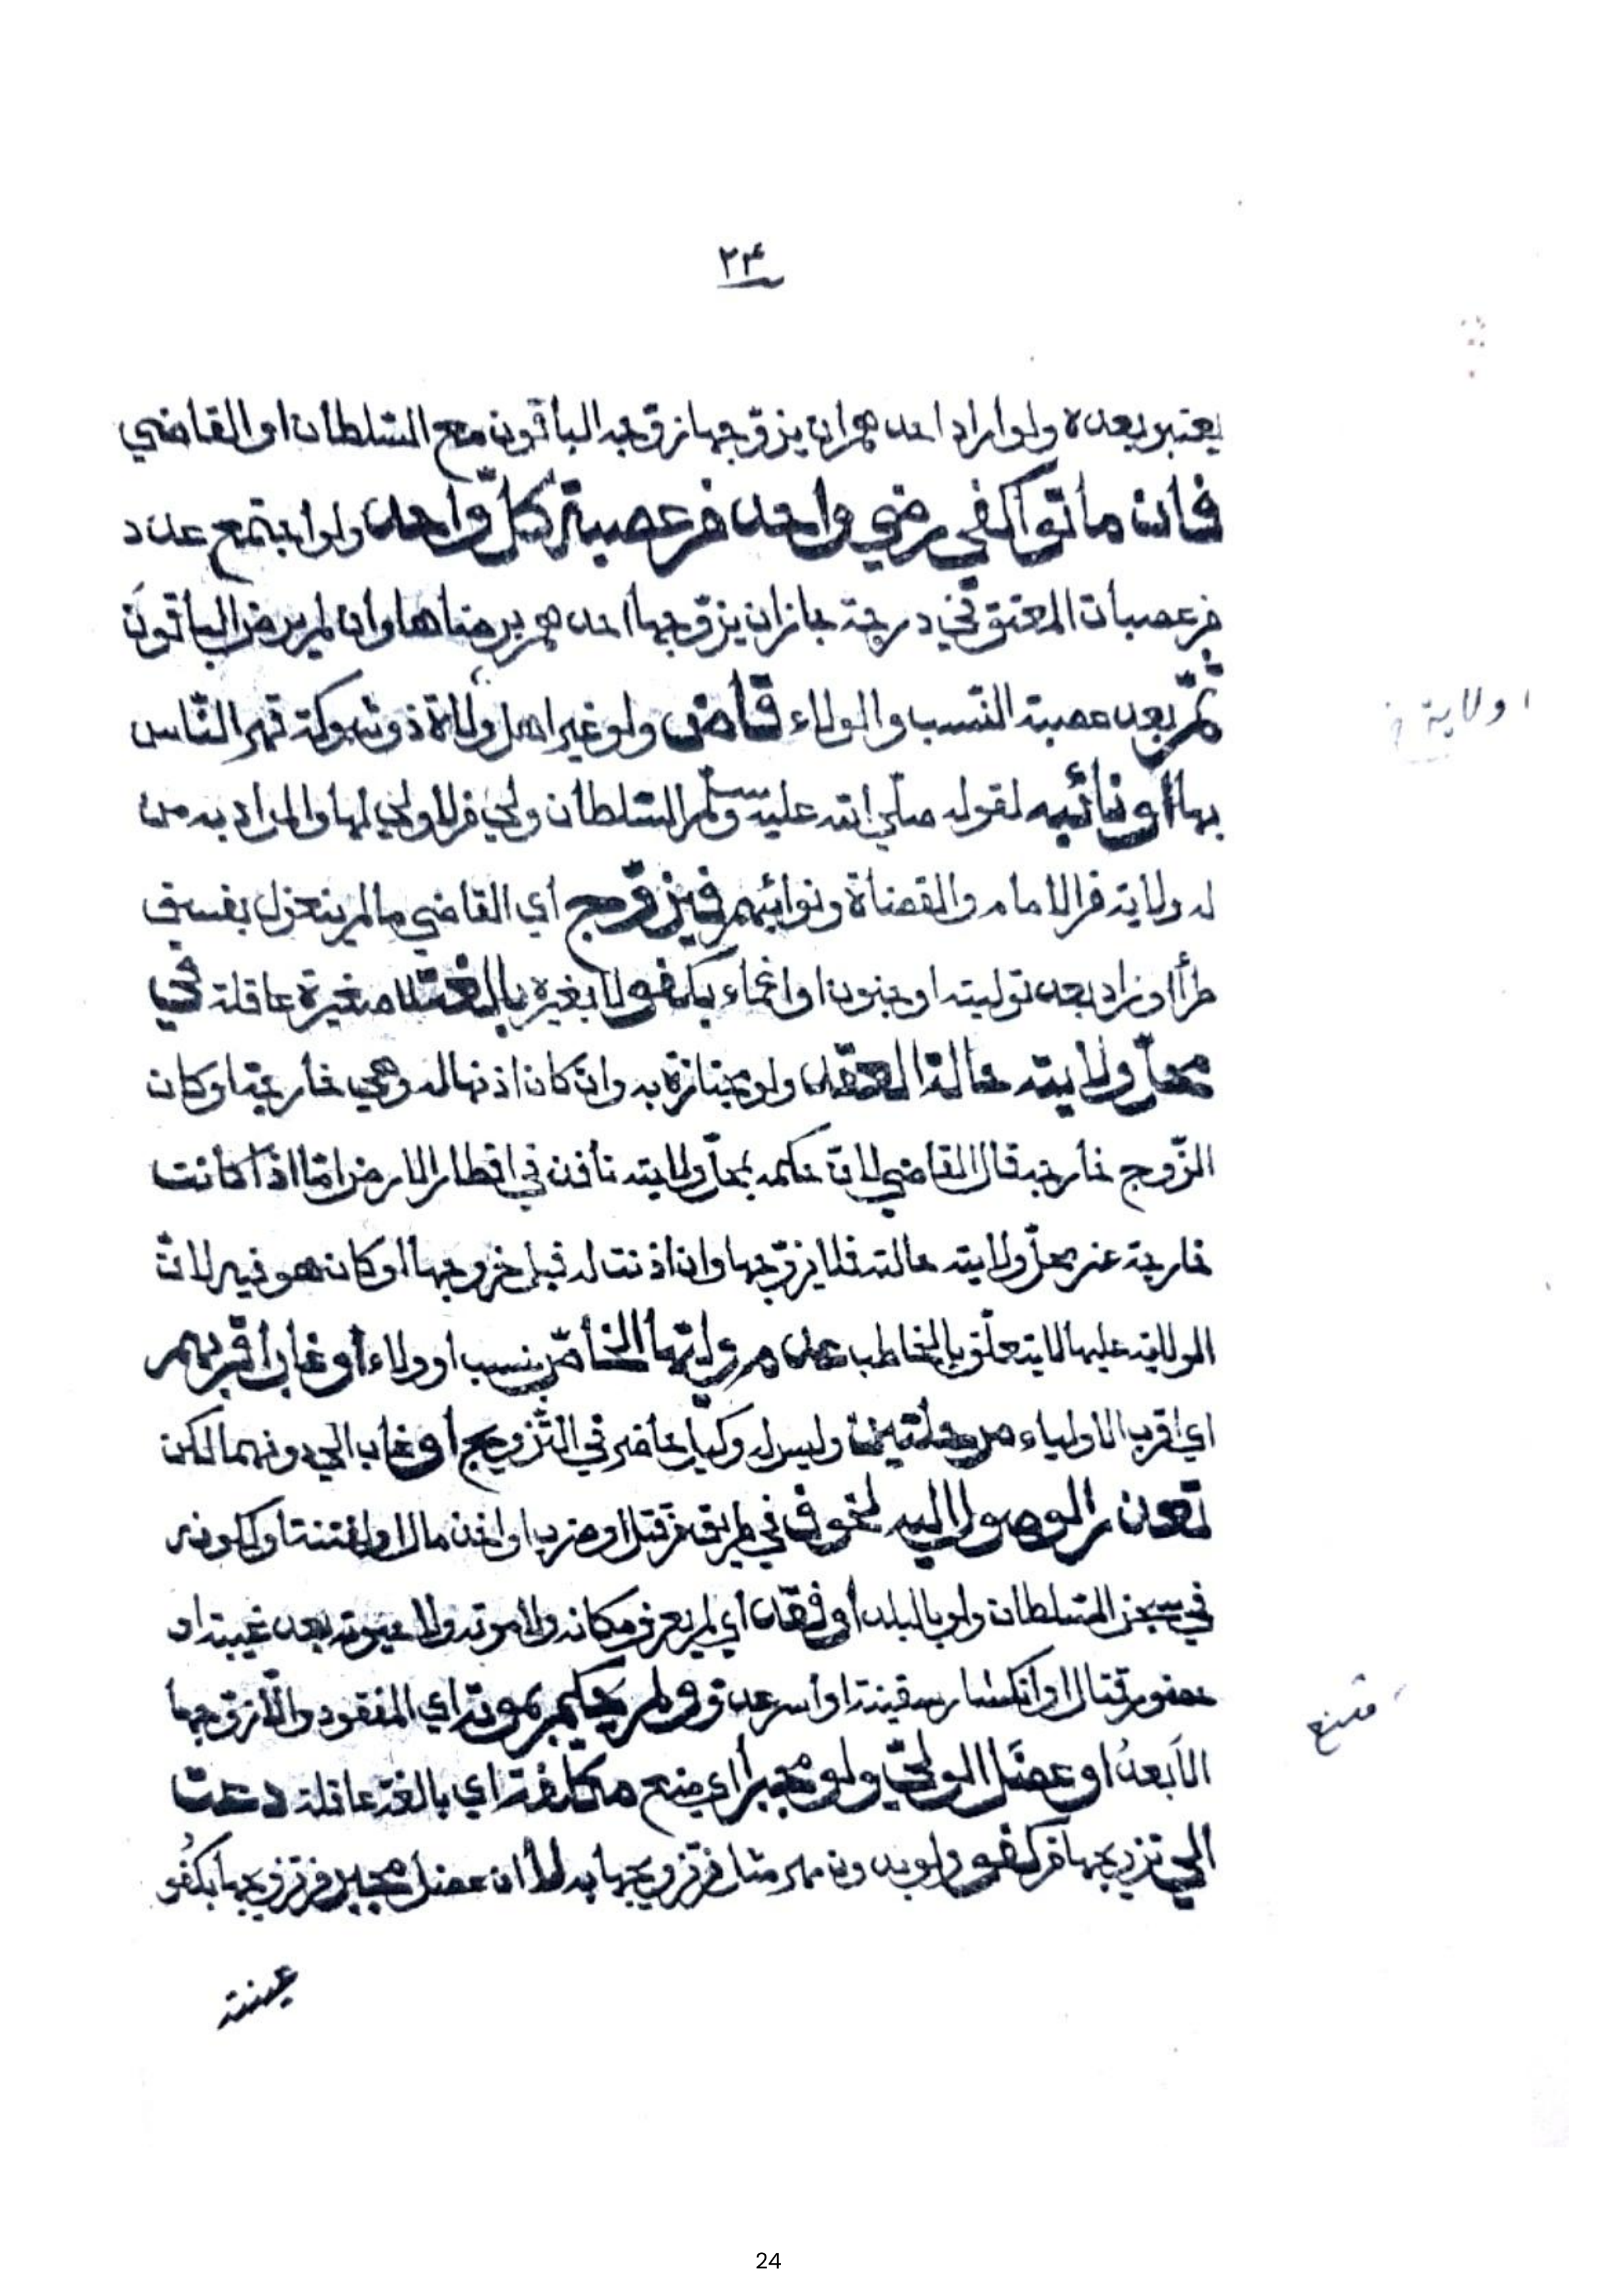 ٢٤
يعتبر بعده ولو اراد احدهم ان يزوّجها زوّجه الباقون مع السّلطان او القاضي
فان ماتوا كفى رضي واحد من عصبة كلّ واحد ولو اجتمع عدد
من عصبات المعتق في درجة جاز ان يزوّجها احدهم برضاها وان لم يرض الباقون
ثمّ بعد عصبة النّسب والولاء قاض ولو غير اهل ولاة ذو شوكة قهر النّاس
اولاية خ
بها أو نائبه لقوله صلّى الله عليه وسلّم السّلطان ولي من لا ولي لها والمراد به من
له ولاية من الامام والقضاة ونوائبهم فيزوّج أي القاضي ما لم ينعزل بفسق
طرأ او زاد بعد توليته او جنون او اغماء بكفو لا بغيره بالغة لا صغيرة عاقلة في
محلّ ولايته حالة العقد ولو مجتازة به وان كان اذنها له وهي خارجة او كان
الزّوج خارجه قال القاضي لانّ حكمه بمحلّ ولايته نافذ في اقطار الارض امّا اذا كانت
خارجة عن محلّ ولايته حالته فلا يزوّجها وان اذنت له قبل خروجها او كان هو فيه لانّ
الولاية عليها لا يتعلّق بالخاطب عدم وليّها الخاصّ بنسب او ولاء أو غاب اقربهم
اي اقرب الاولياء مرحلتين وليس له وكيل حاضر في التّزويج أو غاب الي دونهما لكن
تعذر الوصول اليه لخوف في طريقه من قتل او ضرب او اخذ مال او لفتنة او ككونه
في سجن السّلطان ولو بالبلد أو فقد أي لم يعرف مكانه ولا موته ولا حيوته بعد غيبته او
حضور قتال او انكسار سفينة او اسر عدو ولم يحكم بموته اي المفقود والّا زوّجها
الأبعدُ او عضل الوليّ ولو مجبرا اي منع مكلّفة اي بالغة عاقلة دعت
متنع
الي تزويجها من كفو ولو بدون مهر مثل من تزويجها به لا ان عضل مجبر من تزويجها بكفُو
عينته
24